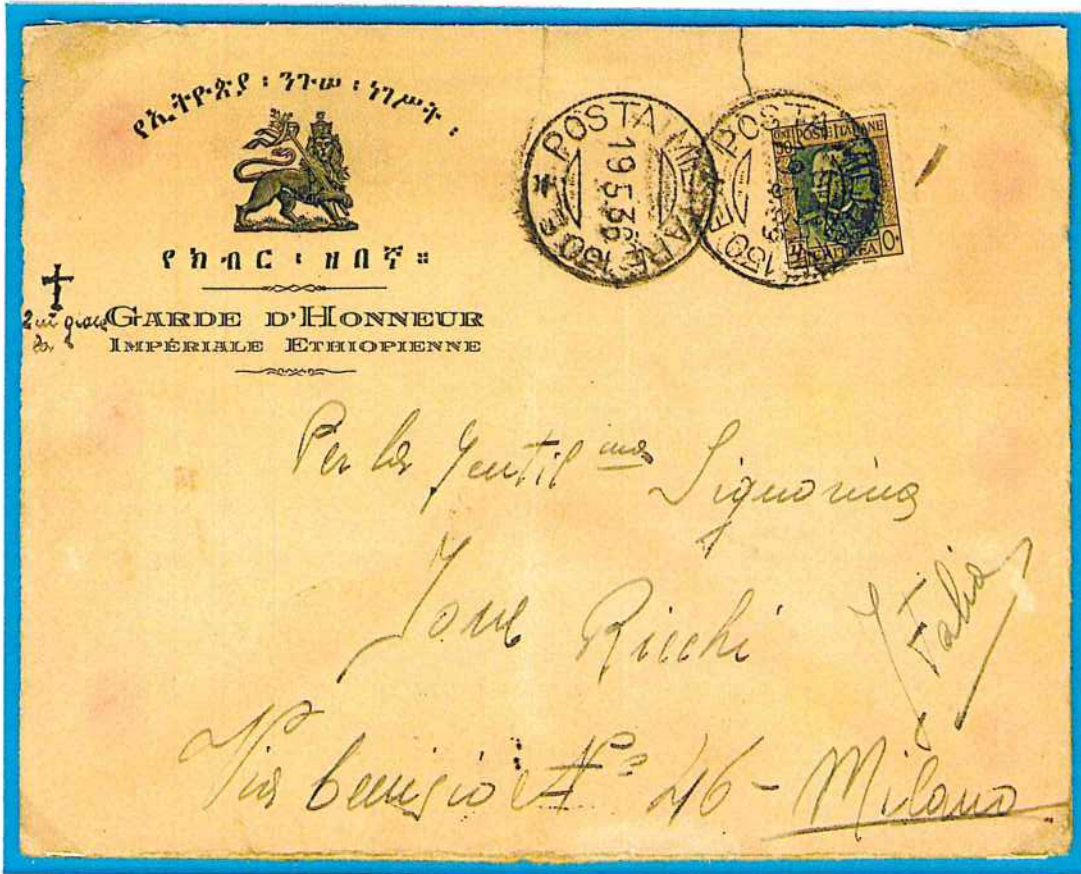 የኢትዮጵያ ፡ ንጉሠ ፡ ነገሥት ፡
የክብር ፡ ዘበኛ ።
GARDE D'HONNEUR
IMPÉRIALE ETHIOPIENNE
POSTA MILITARE 130 E
19.5.36
POSTA MILITARE 130 E
POSTE ITALIANE
ERITREA
Per la Gentil ma Signorina
Ione Ricchi
Italia
Via Ceresio N° 46 - Milano